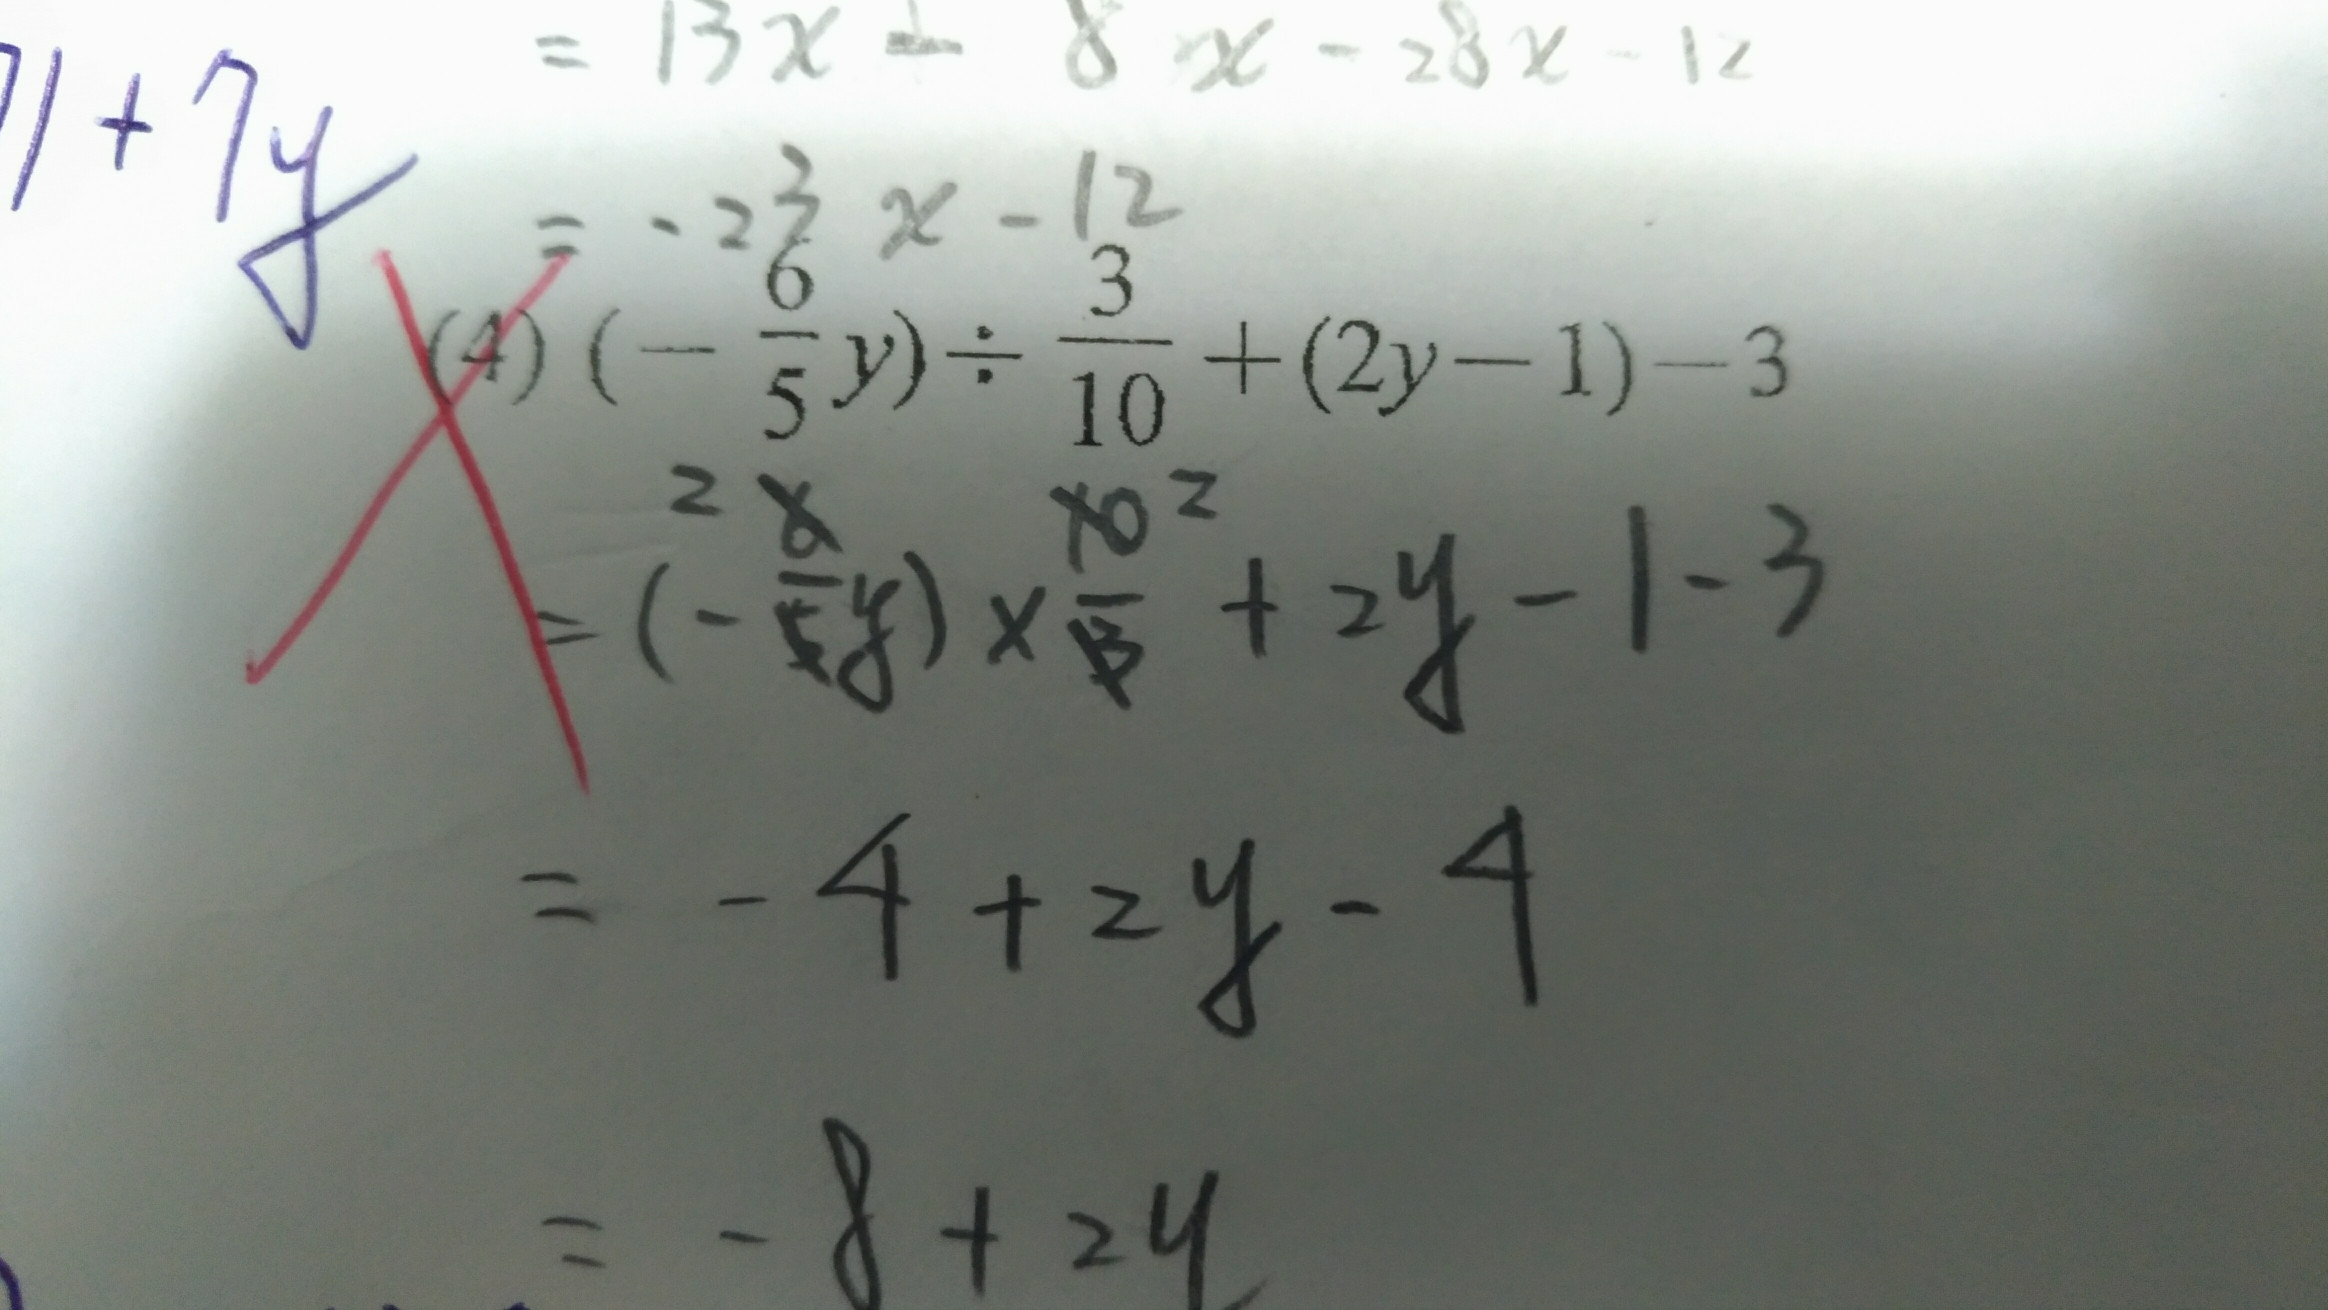 = 13x - 8x - 28x - 12
7) + 7y
= -23x - 12
(4) (-6/5 y) ÷ 3/10 + (2y-1) - 3
2 2
= (-6/5 y) × 10/3 + 2y - 1 - 3
= -4 + 2y - 4
= -8 + 2y